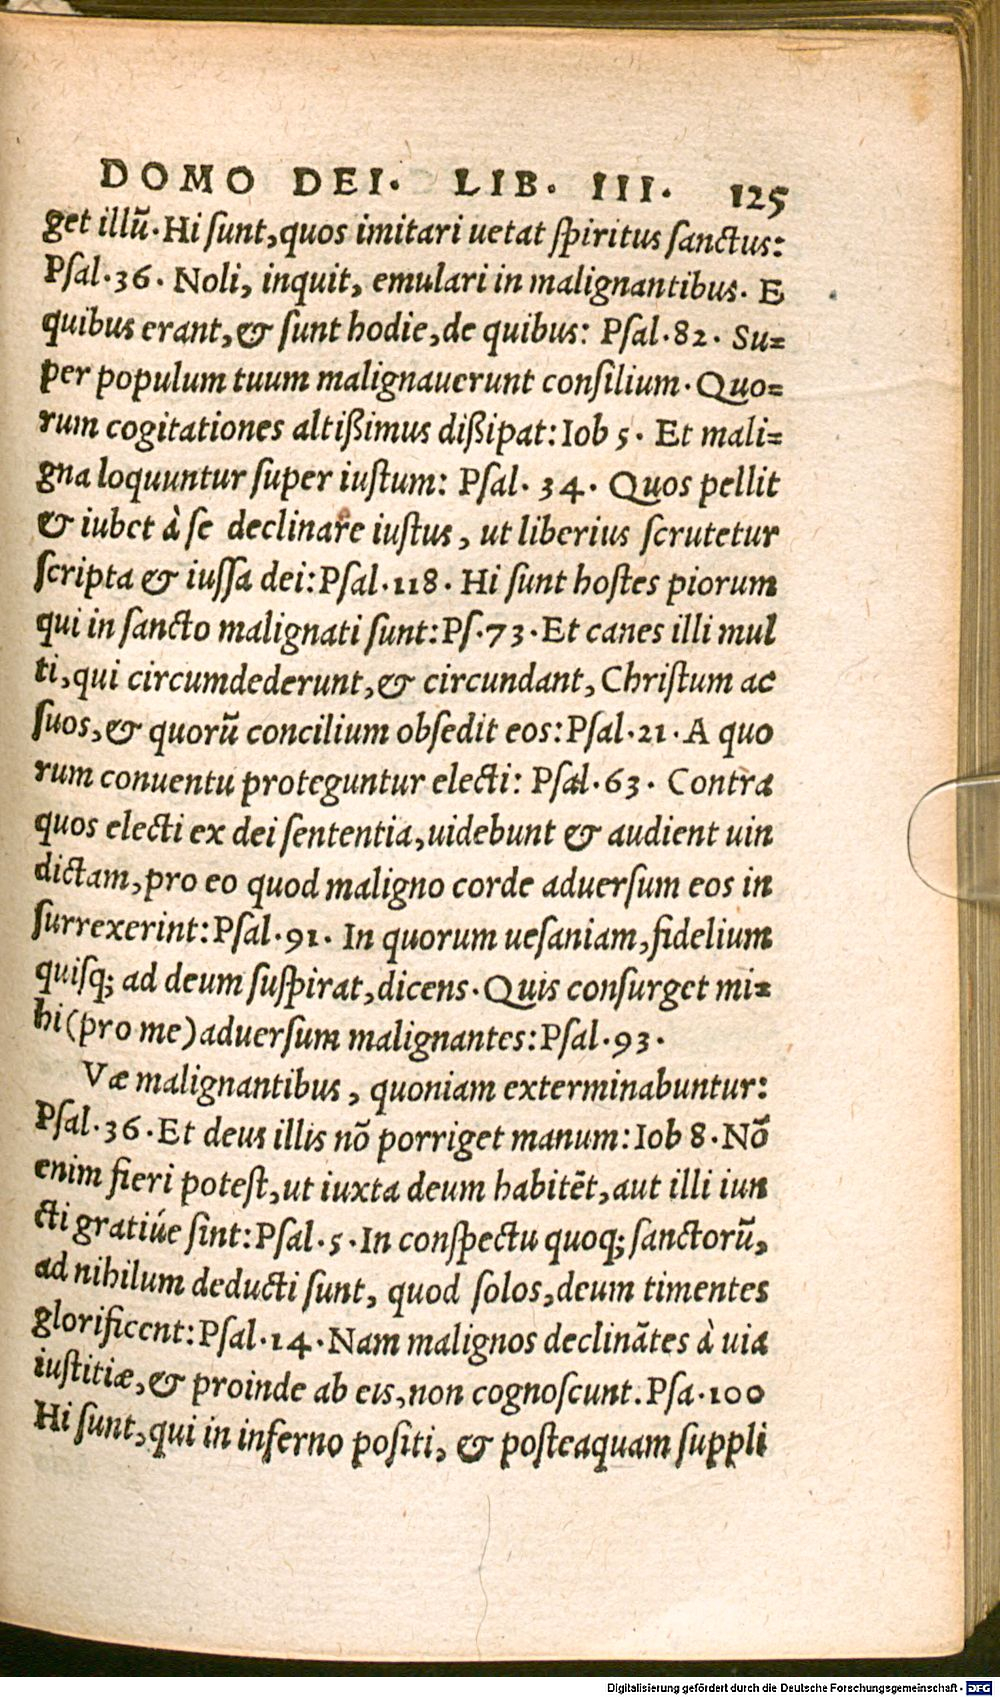 DOMO DEI. LIB. III. 125
get illũ. Hi ſunt, quos imitari uetat ſpiritus ſanctus:
Pſal. 36. Noli, inquit, emulari in malignantibus. E
quibus erant, & ſunt hodie, de quibus: Pſal. 82. Su-
per populum tuum malignauerunt conſilium. Quo-
rum cogitationes altißimus dißipat: Iob 5. Et mali-
gna loquuntur ſuper iuſtum: Pſal. 34. Quos pellit
& iubet à ſe declinare iuſtus, ut liberius ſcrutetur
ſcripta & iuſſa dei: Pſal. 118. Hi ſunt hoſtes piorum
qui in ſancto malignati ſunt: Pſ. 73. Et canes illi mul
ti, qui circumdederunt, & circundant, Chriſtum ac
ſuos, & quorũ concilium obſedit eos: Pſal. 21. A quo
rum conuentu proteguntur electi: Pſal. 63. Contra
quos electi ex dei ſententia, uidebunt & audient uin
dictam, pro eo quod maligno corde aduerſum eos in
ſurrexerint: Pſal. 91. In quorum ueſaniam, fidelium
quiſq; ad deum ſuſpirat, dicens. Quis conſurget mi-
hi (pro me) aduerſum malignantes: Pſal. 93.
Væ malignantibus, quoniam exterminabuntur:
Pſal. 36. Et deus illis nõ porriget manum: Iob 8. Nõ
enim fieri poteſt, ut iuxta deum habitẽt, aut illi iun
cti gratiúe ſint: Pſal. 5. In conſpectu quoq; ſanctorũ,
ad nihilum deducti ſunt, quod ſolos, deum timentes
glorificent: Pſal. 14. Nam malignos declinãtes à uia
iuſtitiæ, & proinde ab eis, non cognoſcunt. Pſa. 100
Hi ſunt, qui in inferno poſiti, & poſteaquam ſuppli
Digitalisierung gefördert durch die Deutsche Forschungsgemeinschaft - DFG